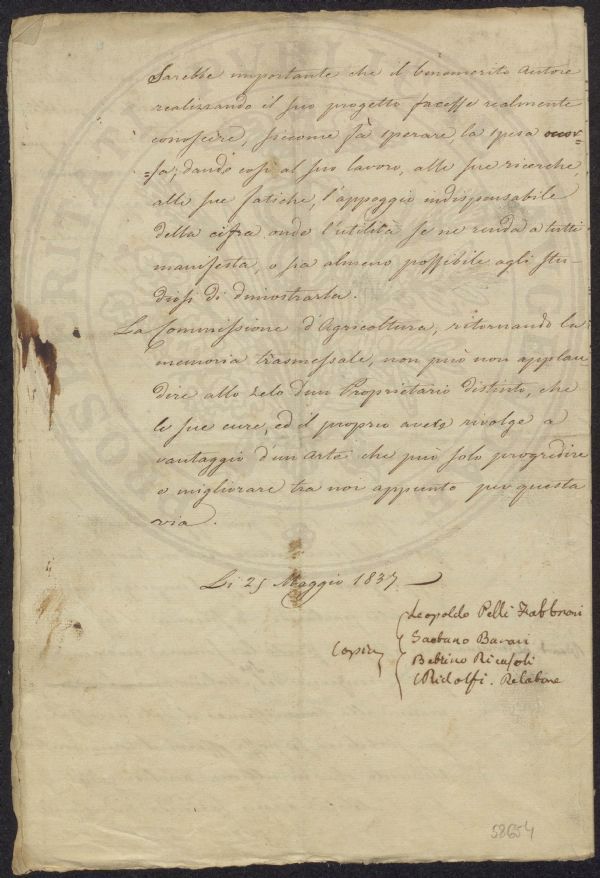 Sarebbe importante che il benemerito Autore
realizzando il suo progetto facesse realmente
conoscere, siccome fà sperare, la spesa occor-
=sa, dando così al suo lavoro, alle sue ricerche,
alle sue fatiche, l'appoggio indispensabile
della cifra onde l'utilità se ne renda a tutti
manifesta, o sia almeno possibile agli stu-
diosi di dimostrarla.
La Commissione d'Agricoltura, ritornando la
memoria trasmessale, non può non applau-
dire allo zelo d'un Proprietario distinto, che
le sue cure, ed il proprio avere rivolge a
vantaggio d'un Arte che può solo progredire
e migliorare tra noi appunto per questa
via.
Li 25 Maggio 1837
Leopoldo Pelli Fabbroni
Gaetano Baroni
Copia Bettino Ricasoli
CRidolfi. Relatore
58654